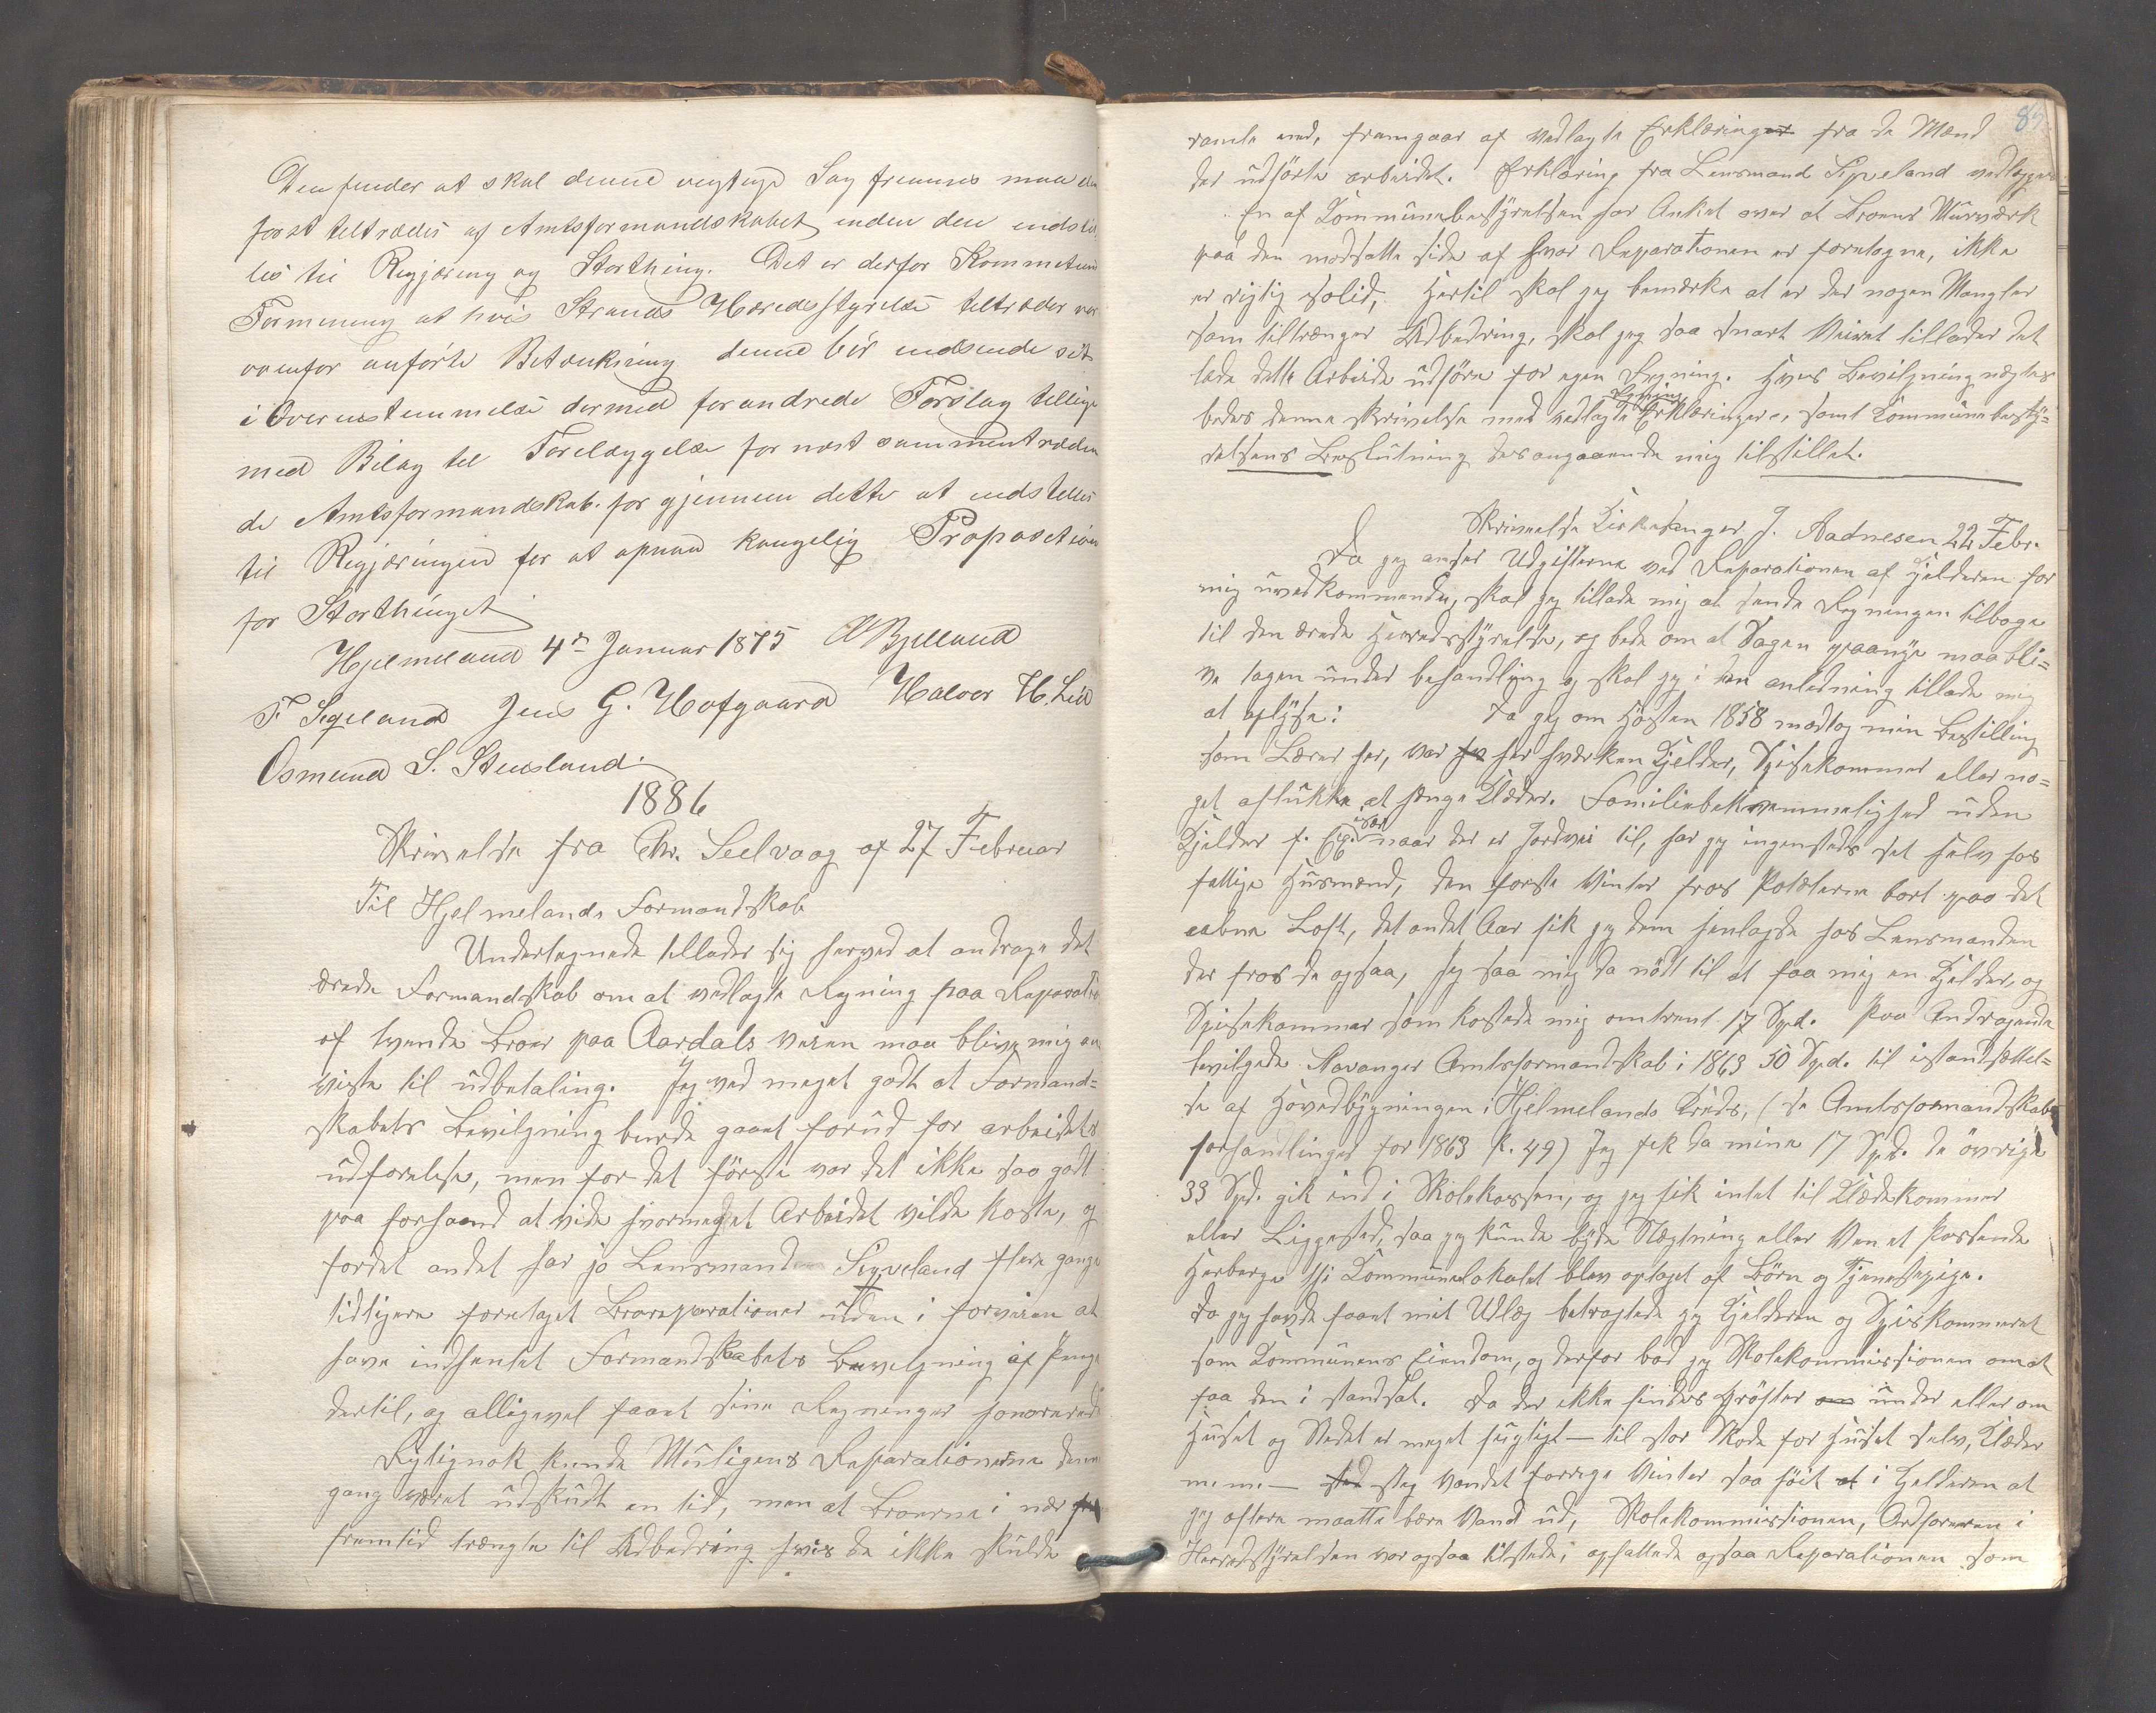 Den finder at skal denne vegtige Sag fremmes maa den
først teltrædes af Amtsformandskabet inden den indstil
les til Regjæring og Storthing. Det er derfor Kommeteens
Formening at hvis Strands Heredsstyrelse teltræder ver
ovenfor anførte Betænkning denne bør indsende sit
i Overensstemmelse dermed forandrede Forslag tellige
med Bilag tel Forelæggelse for næst sammentræden
de Amtsformandskab. for gjennem dette at indstelles
til Regjæringen for at opnaa kongelig Proposetion
for Storthinget
Hjelmeland 4de Januar 1875 O Bjelland
T. Sigveland Jens G. Hofgaard Halvor H. Lid
Osmund S. Stensland.
1886
Skrivelse fra Chr. Seelvaag af 27 Februar
Til Hjelmelands Formandskab
Undertegnede tillader sig herved at andrage det
ærede Formandskab om at vedlagte Regning paa Reparation
af tvende Broer paa Aardals veien maa blive mig an
viste til udbetaling. Jeg ved meget godt at Formand=
skabets Bevilgning burde gaaet forud for arbeidets
udførelse, men for det første var det ikke saa godt
paa forhaand at vide hvormeget Arbeidet vilde koste, og
fordet andet har jo Lensmand Sigveland flere gange
tidligere foretaget Broreparationer uden i forveien at
have indhentet Formandskabets Bevelgning af Penge
dertil, og alligevel faaet sine Regninger honorerede
Rigtignok kunde Muligens Reparationerne denne
gang været udskudt en tid, men at Broerne i nær
fremtid trængte til Udbedring hvis de ikke skulde
85
ramle ned, fremgaar af vedlagte Erklæringer fra de Mænd
der udførte arbeidet. Erklæring fra Lensmand Sigveland vedlægges
En af Kommunebestyrelsen har Anket over at Broens Murværk
paa den modsatte side af hvor Reparationen er foretagne, ikke
er rigtig solid, Hertil skal jeg bemærke at er der nogen Mangler
som tiltrænger Udbedring, skal jeg saa snart Veiret tillader det
lade dette Arbeide udføre for egen Regning. Hvis Bevilgning nægtes
bedes denne skrivelse med vedlagte Regning Erklæringer, samt Kommunebesty=
relsens Beslutning desangaaende mig tilstillet.
Skrivelse Kirkesanger J. Aadnesen 22 Febr.
Da jeg anser Udgifterne ved Reparationen af Kjelderen for
mig uvedkommende, skal jeg tillade mig at sende Regningen tilbage
til den ærede Herredsstyrelse, og bede om at Sagen paany maa bli=
ve tagen under behandling og skal jeg i den anledning tillade mig
at oplyse: Da jeg om Høsten 1858 modtog min Bestilling
som Lærer her, var her hverken Kjelder, Spisekammer eller no=
get aflukke at hænge Klæder. Familiebekvemmelighed uden
Kjelder f. Ex. naar der er Jordvei til, har jeg ingensteds set selv hos
fattige Husmænd, den første Vinter frøs Poteterne bort paa det
aabne Loft, det andet Aar fik jeg dem henlagde hos Lensmanden
der frøs de ogsaa, Jeg saa mig da nødt til at faa mig en Kjelder, og
Spisekammer som kostede mig omtrent 17 Spd. Paa Andragende
bevilgede Stavanger Amtsformandskab i 1863 50 Spd. til istandsættel=
se af Hovedbygningen i Hjelmelands Kreds, (se Amtsformandskabs
forhandlinger for 1863 P. 49) Jeg fik da mine 17 Spd. de øvrige
33 Spd. gik ind i Skolekassen, og jeg fik intet til Klædekammer
eller Liggested, saa jeg kunde byde Slægtning eller Ven et passende
Herberge thi Kommunelokalet blev optaget af Børn og Tjenestepige.
Da jeg havde faaet mit Udlæg betragtede jeg Kjelderen og Spiskammeret
som Kommunens Eiendom, og derfor bad jeg Skolekommissionen om at
faa den i standsat. Da der ikke findes Grøfter under eller om
Huset og Stedet er meget fugtigt — til stor Skade for Huset selv, Klæder
m. m. — steg Vandet forrige Vinter saa høit i Kjelderen at
jeg oftere maatte bære Vand ud, Skolekommissionen, Ordføreren i
Herredsstyrelsen var ogsaa tilstede, opfattede ogsaa Reparationen som